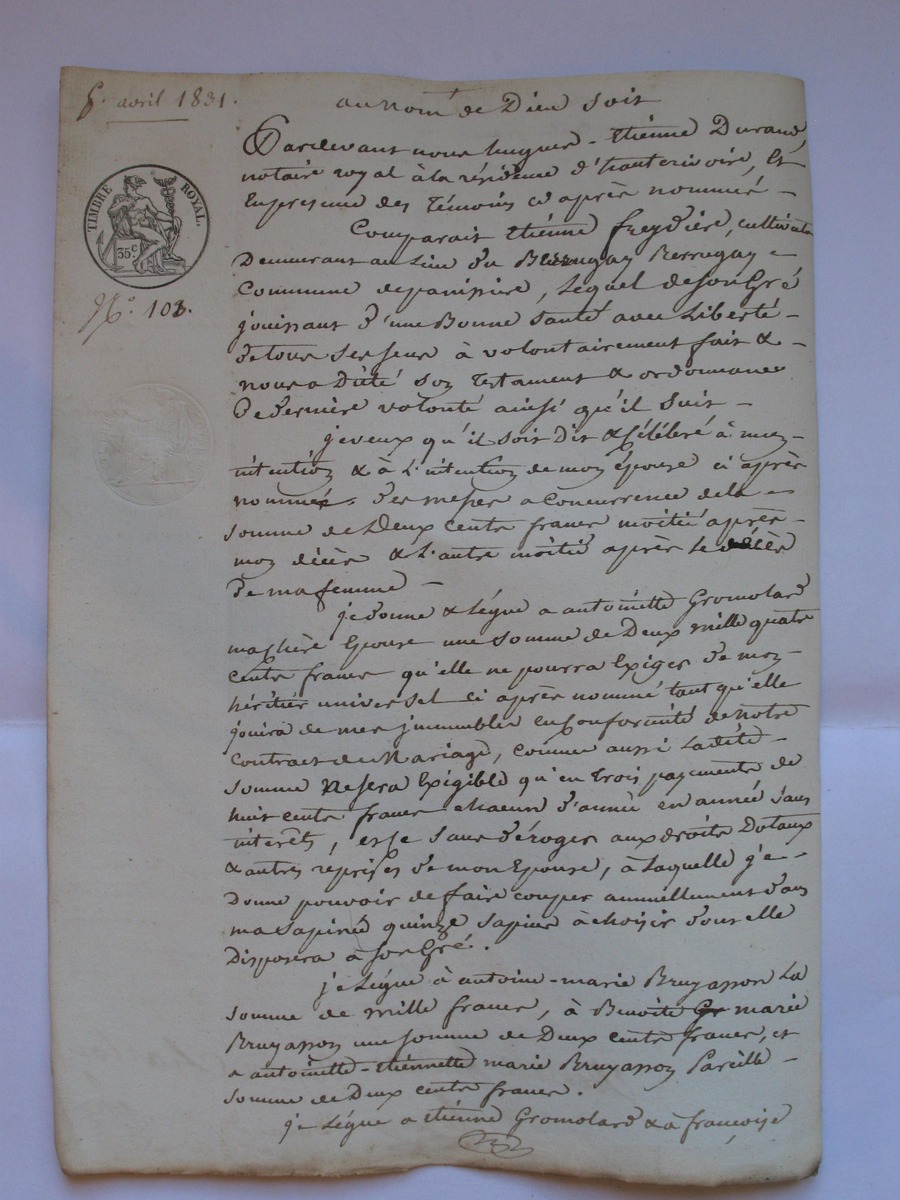 5. avril 1831.
au nom de Dieu soit
Pardevant nous hugues-Etienne Durand
notaire royal à la résidence d'hauterivoire, Et
En presence des Témoins cy après nommés -
TIMBRE ROYAL.
35 c.
Comparait Etienne freydiere, cultivateur
Demeurant au Lieu du Berrugay
Commune de panissiere, Lequel de son Gré
N.o 103.
jouissant d'une Bonne Santé avec Liberté -
de tous ses sens à volontairement fait & -
nous a Dicté son Testament & ordonnance
De derniere volonté ainsi qu'il Suit -
je veux qu'il soit Dit & Célébré à mon -
intention & à L'intention de mon épouse ci après
nommée, des messes a Concurrence de la -
somme de Deux cents francs moitié après -
mon décès & L'autre moitié après Le décès
de ma femme -
je donne & Légue a antoinette Gromolard
ma chère Epouse une Somme de Deux mille quatre
cents francs qu'elle ne pourra Exiger de mon -
héritier universel ci après nommé tant qu'elle
jouira de mes jmmeubles en Conformité de notre
Contract de Mariage, comme aussi Ladite -
somme Ne sera Exigible qu'en trois payments de
huit cents francs chacun d'année en année Sans
interêts, & ce sans déroger aux droits Dotaux
& autres reprises de mon Epouse, à Laquelle je -
Donne pouvoir de faire couper annuellement dans
ma Sapinée quinze sapins à choisir dont elle
Disposera à son Gré.
je Légue à antoine-marie Bruyasson La
somme de mille francs, à Benoite marie
Bruyasson une somme de Deux cents francs, et
a antoinette-Etiennette marie Bruyasson Pareille -
somme de Deux cents francs.
je Légue a etienne Gromolard & à françoise